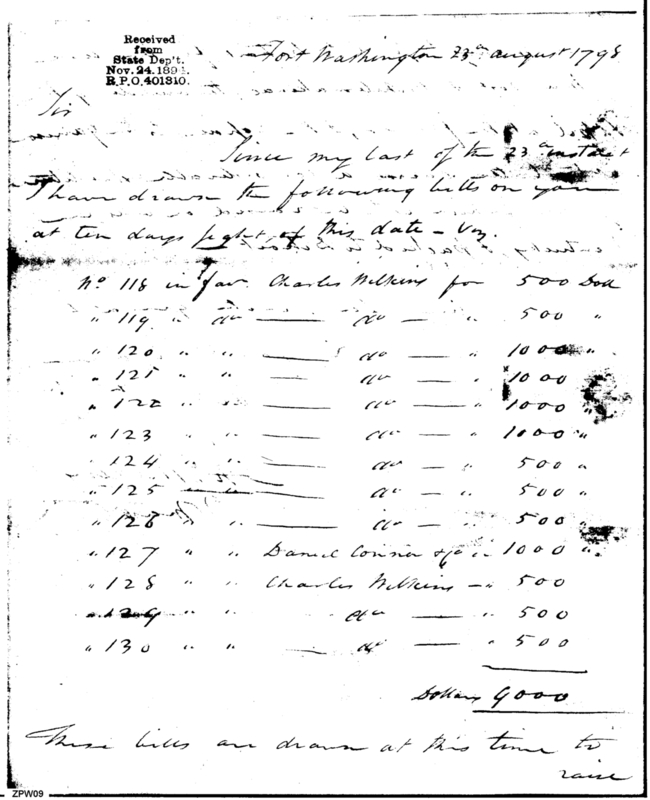 Received
from
State Dep't.
Nov. 24. 1894.
R.P.O. 401310.
Fort Washington 23d August 1798
Sir
Since my last of the 23d instant
I have drawn the following bills on you
at ten days sight of this date - Viz.
No 118 in fav. Charles Wilkins for 500 Doll
" 119 " do — do — " 500 "
" 120 " " — do — " 1000 "
" 121 " " — do — " 1000
" 122 " " — do — " 1000 "
" 123 " " — do — " 1000 "
" 124 " " — do — " 500 "
" 125 — do — " 500 "
" 126 " " — do — " 500
" 127 " " Daniel Conner & Co " 1000 "
" 128 " " Charles Wilkins — " 500
" 129 " " do — " 500
" 130 " " — do — " 500
Dollars 9000
These bills are drawn at this time to
raise
ZPW09